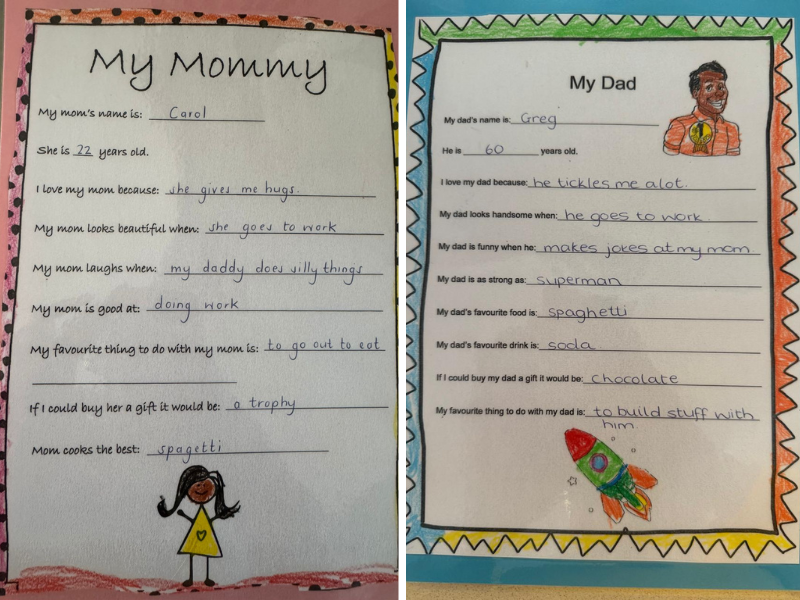 My Mommy
My mom's name is: Carol
She is 22 years old.
I love my mom because: she gives me hugs.
My mom looks beautiful when: she goes to work
My mom laughs when: my daddy does silly things
My mom is good at: doing work
My favourite thing to do with my mom is: to go out to eat
If I could buy her a gift it would be: a trophy
Mom cooks the best: spagetti
My Dad
1
My dad's name is: Greg
He is 60 years old.
I love my dad because: he tickles me alot.
My dad looks handsome when: he goes to work
My dad is funny when he: makes jokes at my mom
My dad is as strong as: superman
My dad's favourite food is: spaghetti
My dad's favourite drink is: soda
If I could buy my dad a gift it would be: chocolate
My favourite thing to do with my dad is: to build stuff with
him.